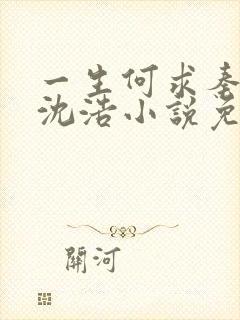 一生何求秦
沈浩小説免
關河